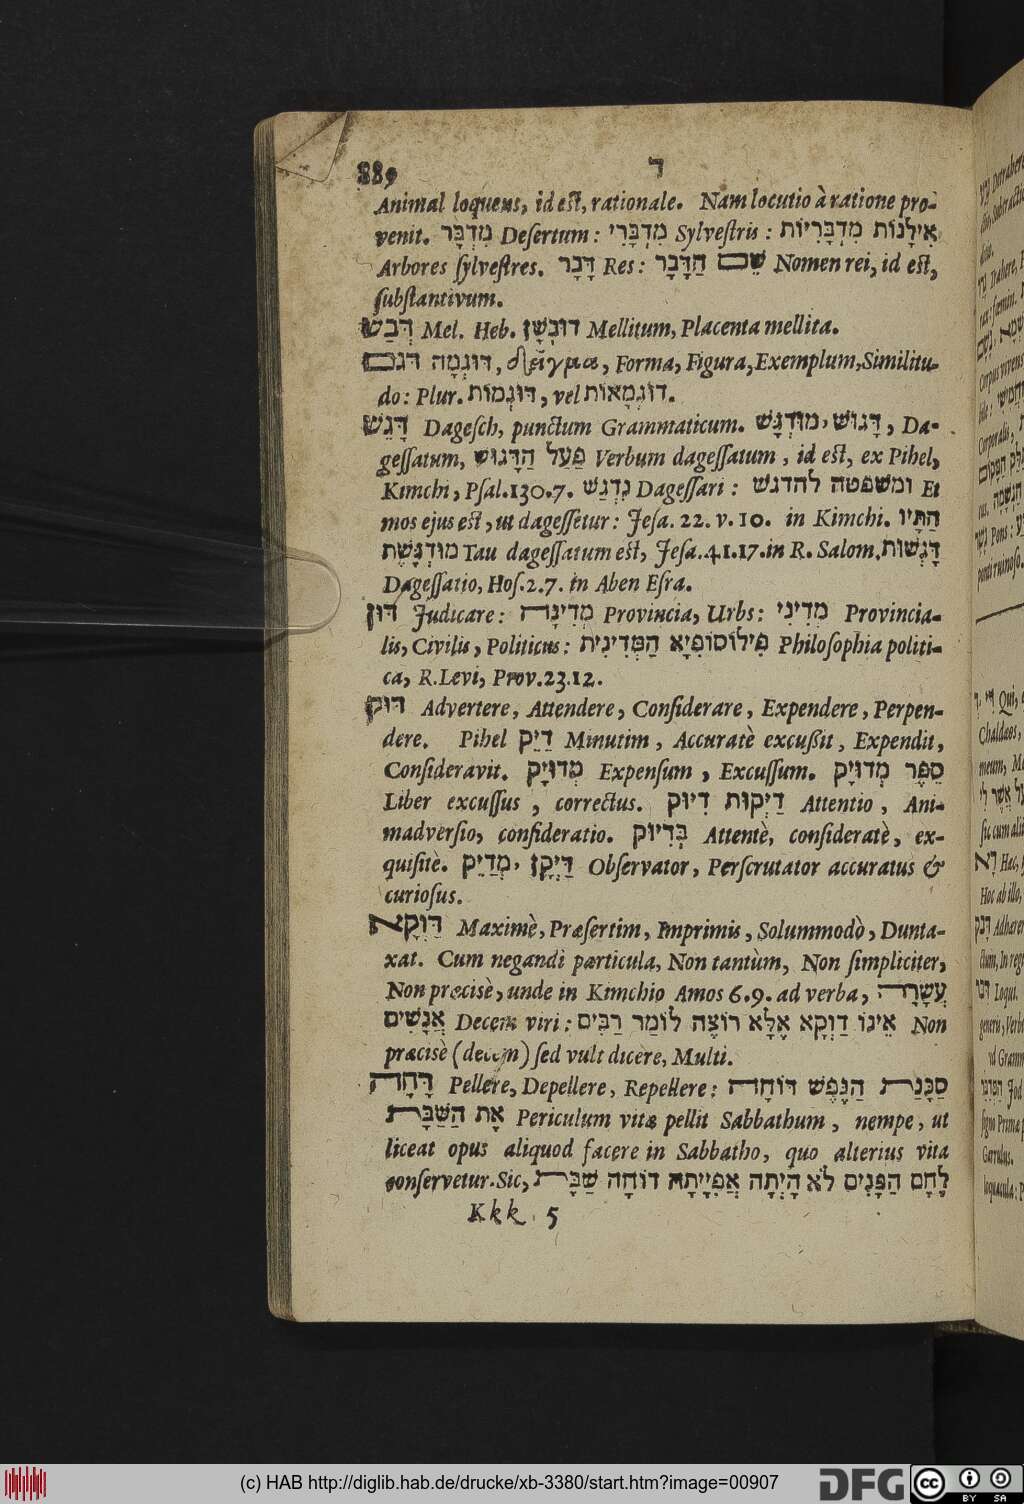 889 ד
Animal loquens, id est, rationale. Nam locutio à ratione pro-
venit. מִדְבָּר Desertum: מִדְבָּרִי Sylvestris: אִילָנוֹת מִדְבָּרִיּוֹת
Arbores sylvestres. דָּבָר Res: שֵׁם הַדָּבָר Nomen rei, id est,
substantivum.
דְּבַשׁ Mel. Heb. דוּבְשָׁן Mellitum, Placenta mellita.
דגם דּוּגְמָה, δεῖγμα, Forma, Figura, Exemplum, Similitu-
do: Plur. דּוּגְמוֹת, vel דוֹגְמָאוֹת.
דָּגֵשׁ Dagesch, punctum Grammaticum. דָּגוּשׁ, מוּדְגָּשׁ, Da-
gessatum, פַּעַל הַדָּגוּשׁ Verbum dagessatum, id est, ex Pihel,
Kimchi, Psal. 130.7. נִדְגַּשׁ Dagessari: ומשפטה להדגש Et
mos ejus est, ut dagessetur: Jesa. 22. v. 10. in Kimchi. הַתָּיו
מוּדְגֶּשֶׁת Tau dagessatum est, Jesa. 41.17. in R. Salom. דָּגְשׁוּת
Dagessatio, Hos. 2.7. in Aben Esra.
דּוּן Judicare: מְדִינָה Provincia, Urbs: מְדִינִי Provincia-
lis, Civilis, Politicus: פִילוֹסוֹפִיָא הַמְּדִינִית Philosophia politi-
ca, R. Levi, Prov. 23.12.
דּוּק Advertere, Attendere, Considerare, Expendere, Perpen-
dere. Pihel דִיֵּק Minutim, Accuratè excußit, Expendit,
Consideravit. מְדוּיָּק Expensum, Excussum. סֵפֶר מְדוּיָּק
Liber excussus, correctus. דַיְּקוּת דִיּוּק Attentio, Ani-
madversio, consideratio. בְּדִיּוּק Attentè, consideratè, ex-
quisitè. דַּיְּקָן, מְדַיֵּק Observator, Perscrutator accuratus &
curiosus.
דַּוְקָא Maximè, Præsertim, Imprimis, Solummodò, Dunta-
xat. Cum negandi particula, Non tantùm, Non simpliciter,
Non præcisè, unde in Kimchio Amos 6.9. ad verba, עֲשָׂרָה
אֲנָשִׁים Decem viri: אֵינוֹ דַוְקָא אֶלָּא רוֹצֶה לוֹמַר רַבִּים Non
præcisè (decem) sed vult dicere, Multi.
דָּחָה Pellere, Depellere, Repellere: סַכָּנַת הַנֶּפֶשׁ דּוֹחָה
אֶת הַשַּׁבָּת Periculum vitæ pellit Sabbathum, nempe, ut
liceat opus aliquod facere in Sabbatho, quo alterius vita
conservetur. Sic, לֶחֶם הַפָּנִים לֹא הָיְתָה אֲפִיָּיתָהּ דוֹחָה שַׁבָּת
Kkk 5
(c) HAB http://diglib.hab.de/drucke/xb-3380/start.htm?image=00907
DFG
cc
BY SA